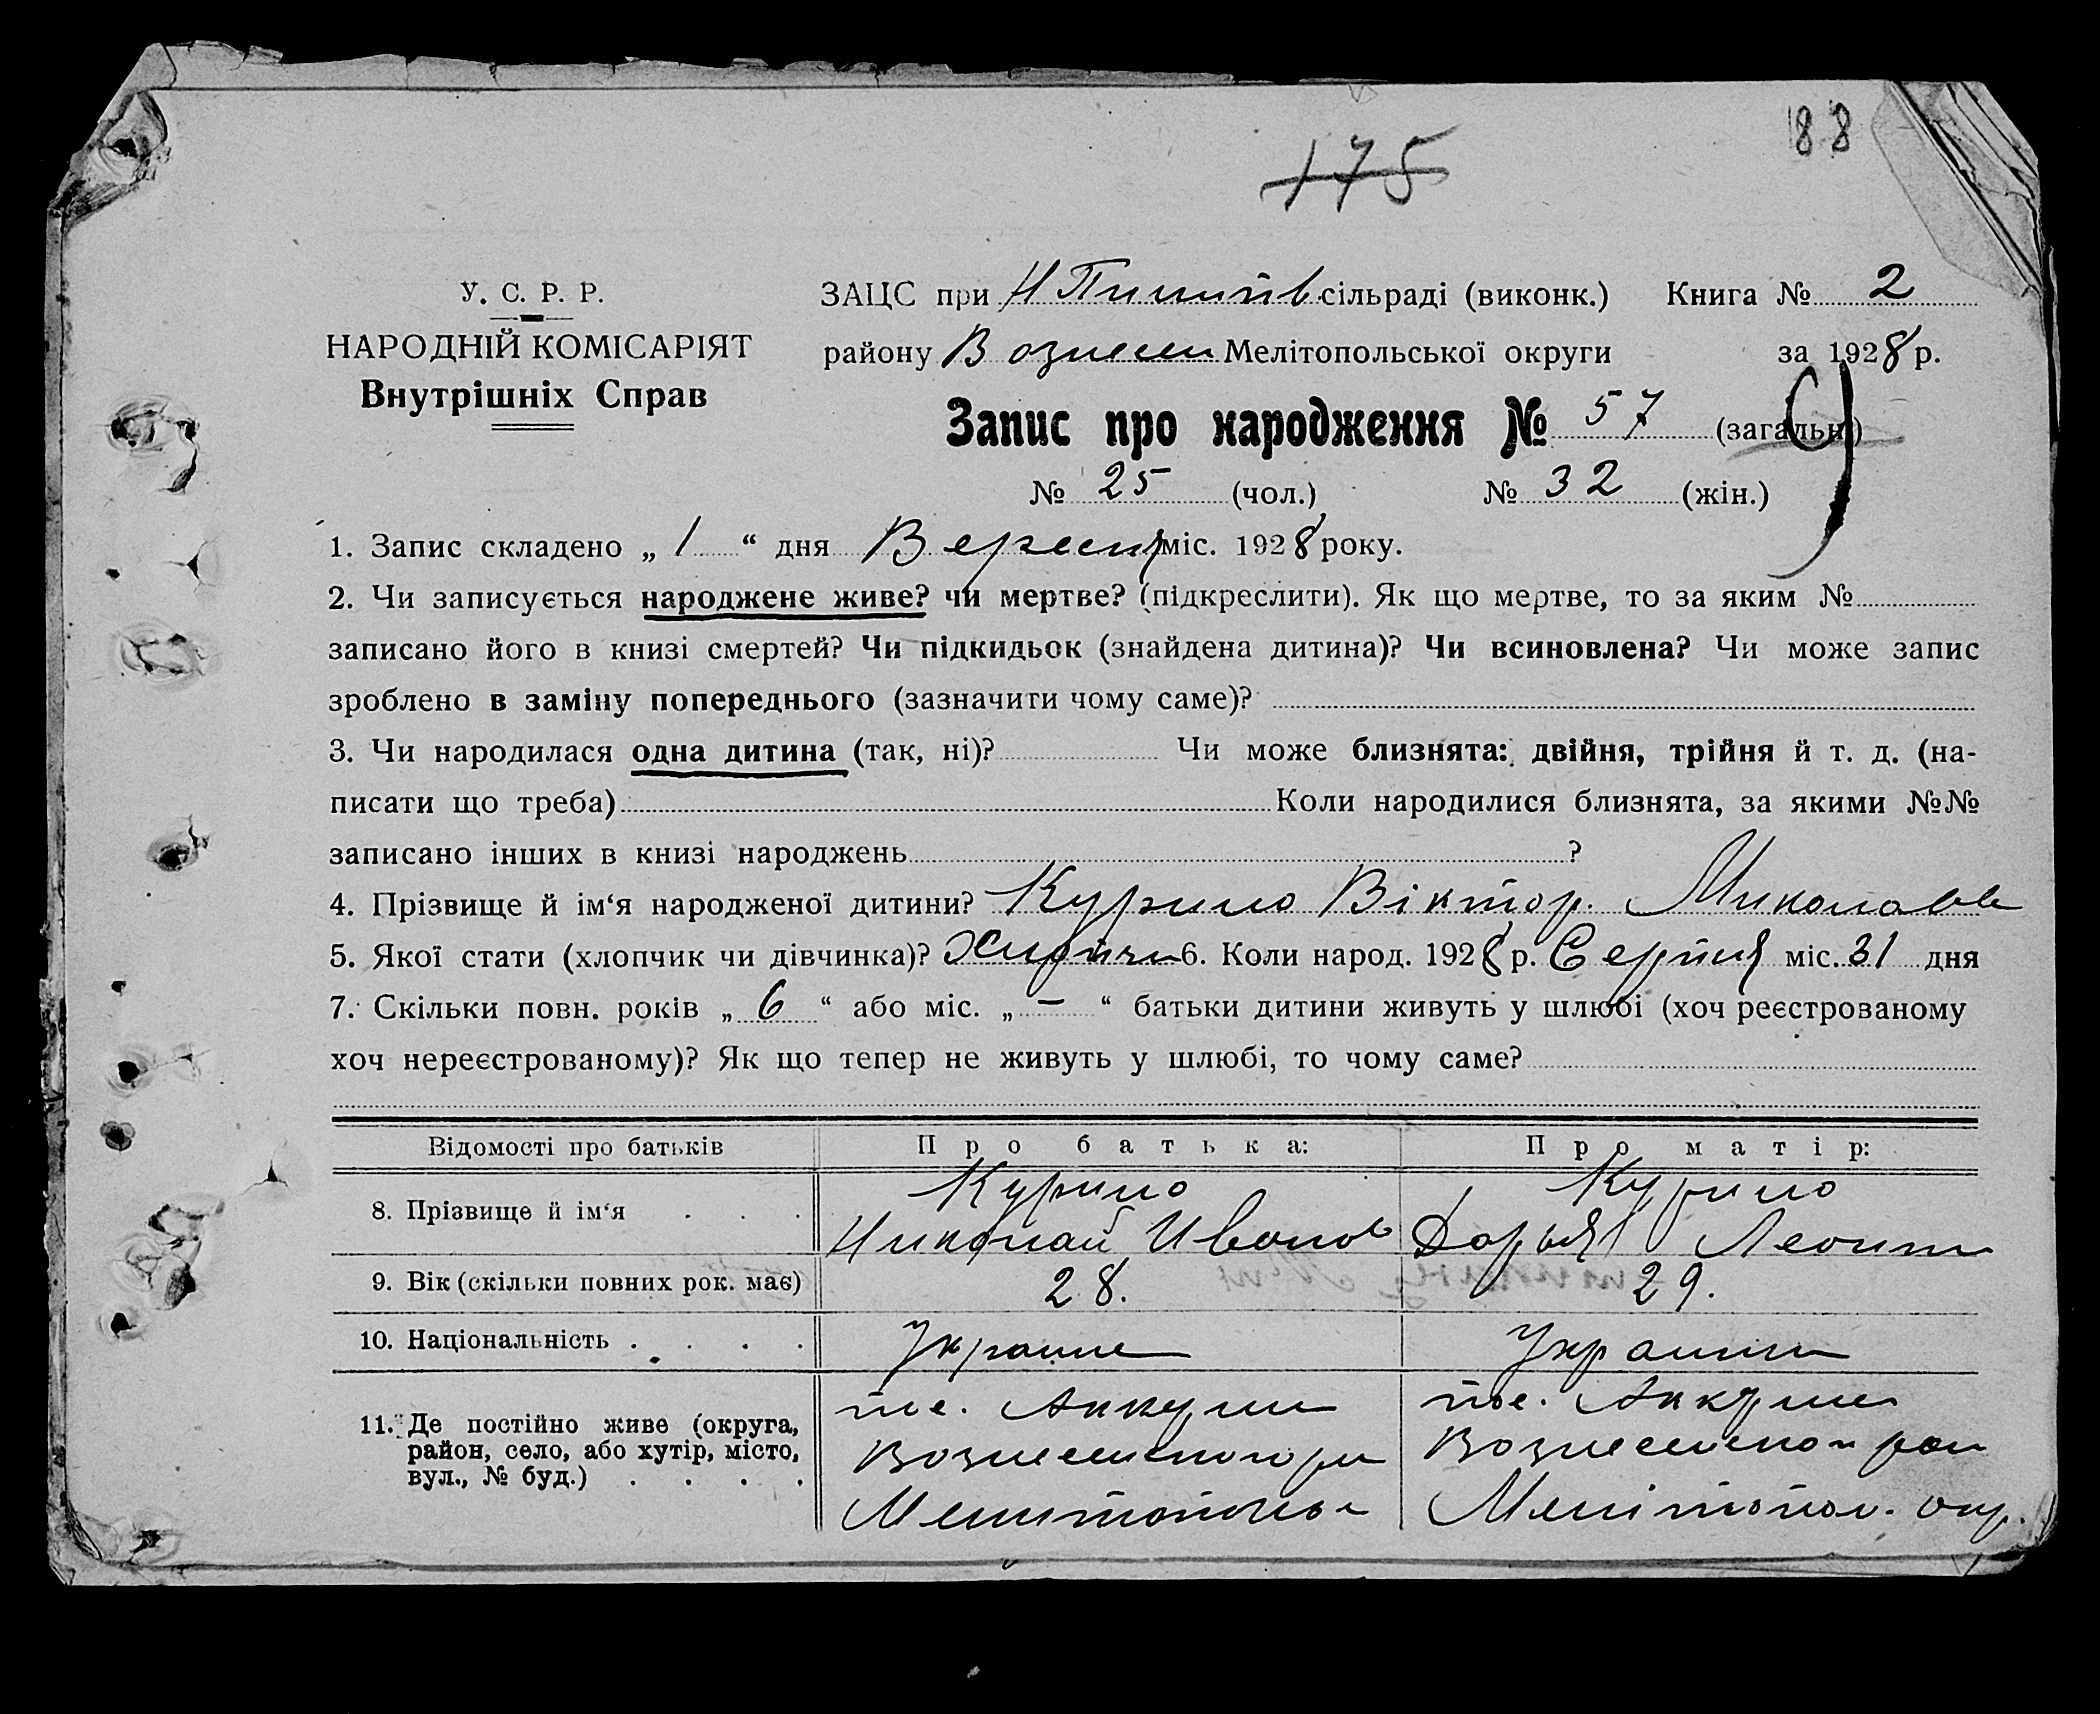 175
88
У. С. Р. Р.
НАРОДНІЙ КОМІСАРІЯТ
Внутрішніх Справ
ЗАЦС при Н сільраді (виконк.) Книга № 2
району Вознесен Мелітопольської округи за 1928 р.
Запис про народження № 57 (загальн.)
№ 25 (чол.) № 32 (жін.)
1. Запис складено „ 1 “ дня Вересня міс. 1928 року.
2. Чи записується народжене живе? чи мертве? (підкреслити). Як що мертве, то за яким №
записано його в книзі смертей? Чи підкидьок (знайдена дитина)? Чи всиновлена? Чи може запис
зроблено в заміну попереднього (зазначити чому саме)?
3. Чи народилася одна дитина (так, ні)? Чи може близнята: двійня, трійня й т. д. (на-
писати що треба) Коли народилися близнята, за якими №№
записано інших в книзі народжень ?
4. Прізвище й ім‘я народженої дитини? Курило Віктор. Миколаев
5. Якої стати (хлопчик чи дівчинка)? 6. Коли народ. 1928 р. Серпня міс. 31 дня
7. Скільки повн. років „ 6 “ або міс. „ — “ батьки дитини живуть у шлюбі (хоч реєстрованому
хоч нереєстрованому)? Як що тепер не живуть у шлюбі, то чому саме?
Відомості про батьків Про батька: Про матір:
8. Прізвище й ім‘я . . . Курило Николай Иванов Курило Дарья Леонт
9. Вік (скільки повних рок. має) 28. 29.
10. Національність . . . . Украине Украини
11. Де постійно живе (округа,
район, село, або хутір, місто,
вул., № буд.) . . . .
пос. Аккерме
Вознесенского
Мелитополь
пос. Аккерме
Вознесенско рай
Мелітопол. окр.